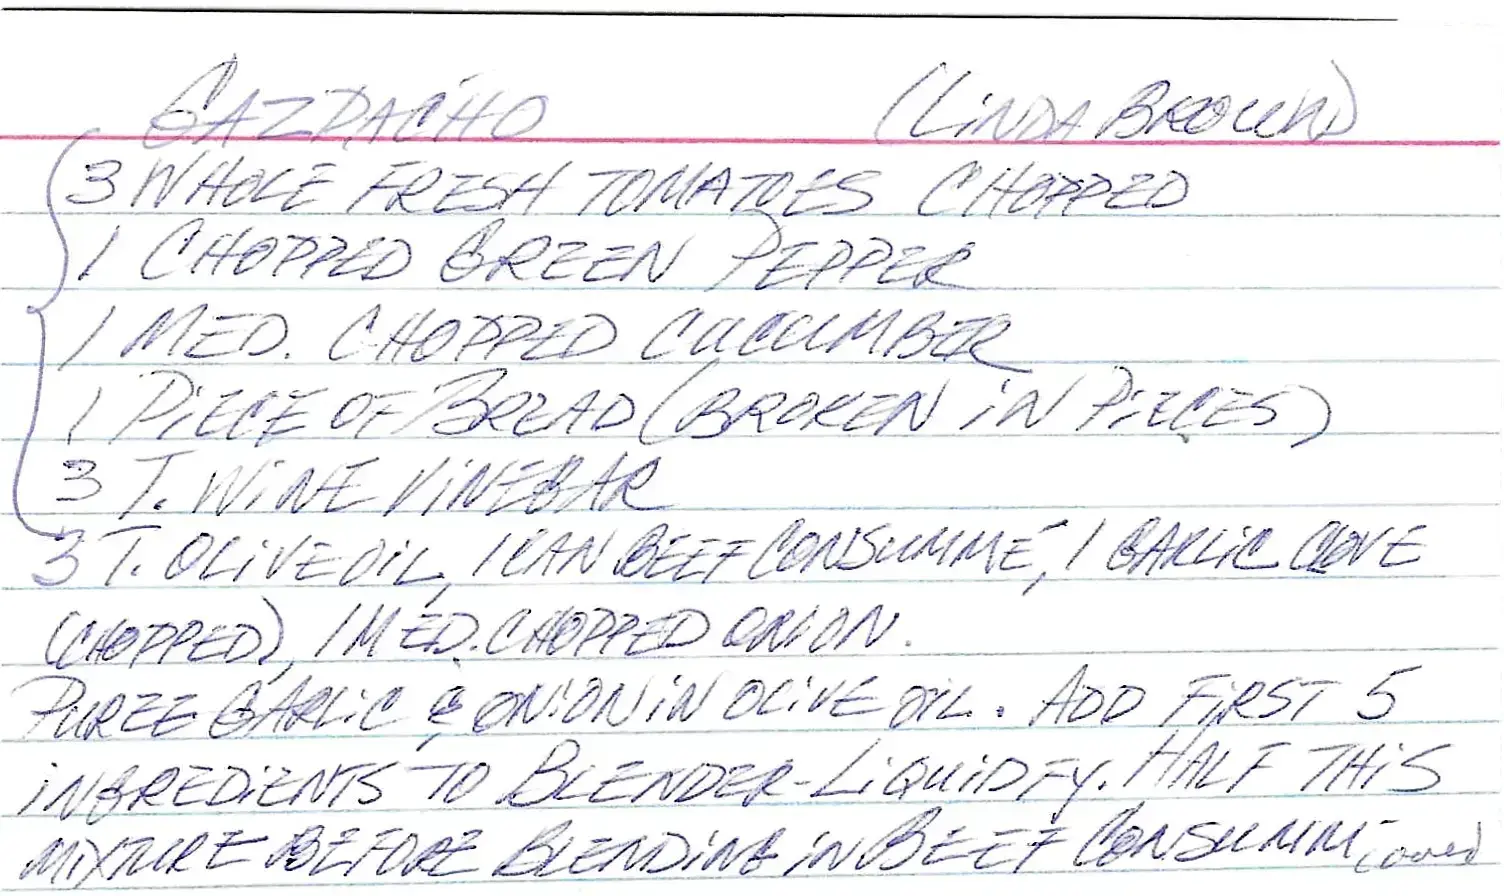 GAZPACHO (LINDA BROWN)
3 WHOLE FRESH TOMATOES CHOPPED
1 CHOPPED GREEN PEPPER
1 MED. CHOPPED CUCUMBER
1 PIECE OF BREAD (BROKEN IN PIECES)
3 T. WINE VINEGAR
3 T. OLIVE OIL, 1 CAN BEEF CONSUMMÉ, 1 GARLIC CLOVE
(CHOPPED), 1 MED. CHOPPED ONION.
PUREE GARLIC & ONION IN OLIVE OIL. ADD FIRST 5
INGREDIENTS TO BLENDER-LIQUIDFY. HALF THIS
MIXTURE BEFORE BLENDING IN BEEF CONSUMME (over)